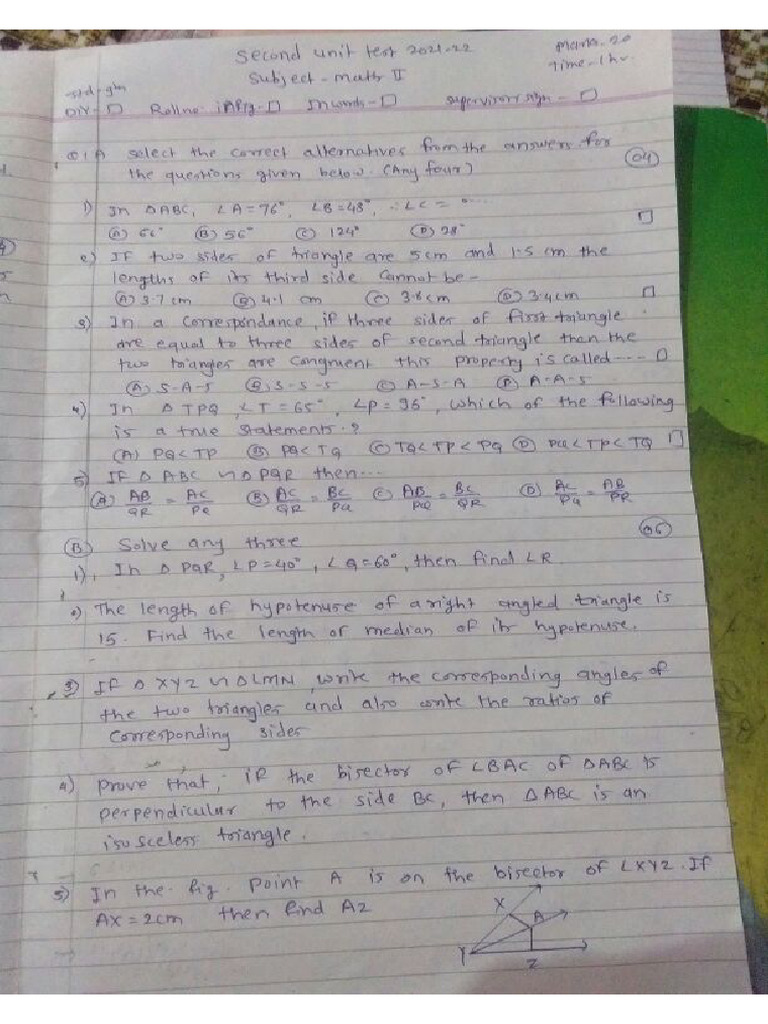 Second unit test 2021-22
Marks-20
Subject - math II
Time-1hr.
Std-9th
Div-□ Rollno. Infig-□ Inwords-□ Supervisor sign - □
Q1A Select the correct alternatives from the answers for
the questions given below. (Any four) 04
1) In △ABC, ∠A=76°, ∠B=48°, ∴∠C = °... □
(A) 66° (B) 56° (C) 124° (D) 28°
2) If two sides of triangle are 5cm and 1.5 cm the
lengths of its third side cannot be -
(A) 3.7 cm (B) 4.1 cm (C) 3.8cm (D) 3.4cm □
3) In a correspondance, if three sides of first triangle
are equal to three sides of second triangle then the
two triangles are congruent this property is called---- □
(A) S-A-S (B) S-S-S (C) A-S-A (D) A-A-S
4) In △ TPQ, ∠T=65°, ∠P=95°, which of the following
is a true statements.?
(A) PQ<TP (B) PQ<TQ (C) TQ<TP<PQ (D) PQ<TP<TQ □
5) If △ ABC ∽ △PQR then...
(A) AB/QR = AC/PQ (B) AC/QR = BC/PQ (C) AB/PQ = BC/QR (D) AC/PQ = AB/PR
(B) Solve any three 06
1) In △ PQR, ∠P=40°, ∠Q=60°, then find ∠R.
2) The length of hypotenuse of a right angled triangle is
15. Find the length of median of its hypotenuse.
3) If △ XYZ ∽ △LMN, write the corresponding angles of
the two triangles and also write the ratios of
corresponding sides
4) prove that, if the bisector of ∠BAC of △ABC is
perpendicular to the side BC, then △ABC is an
isosceless triangle.
5) In the fig. point A is on the bisector of ∠XYZ. If
AX=2cm then find AZ
X
A
Y
Z